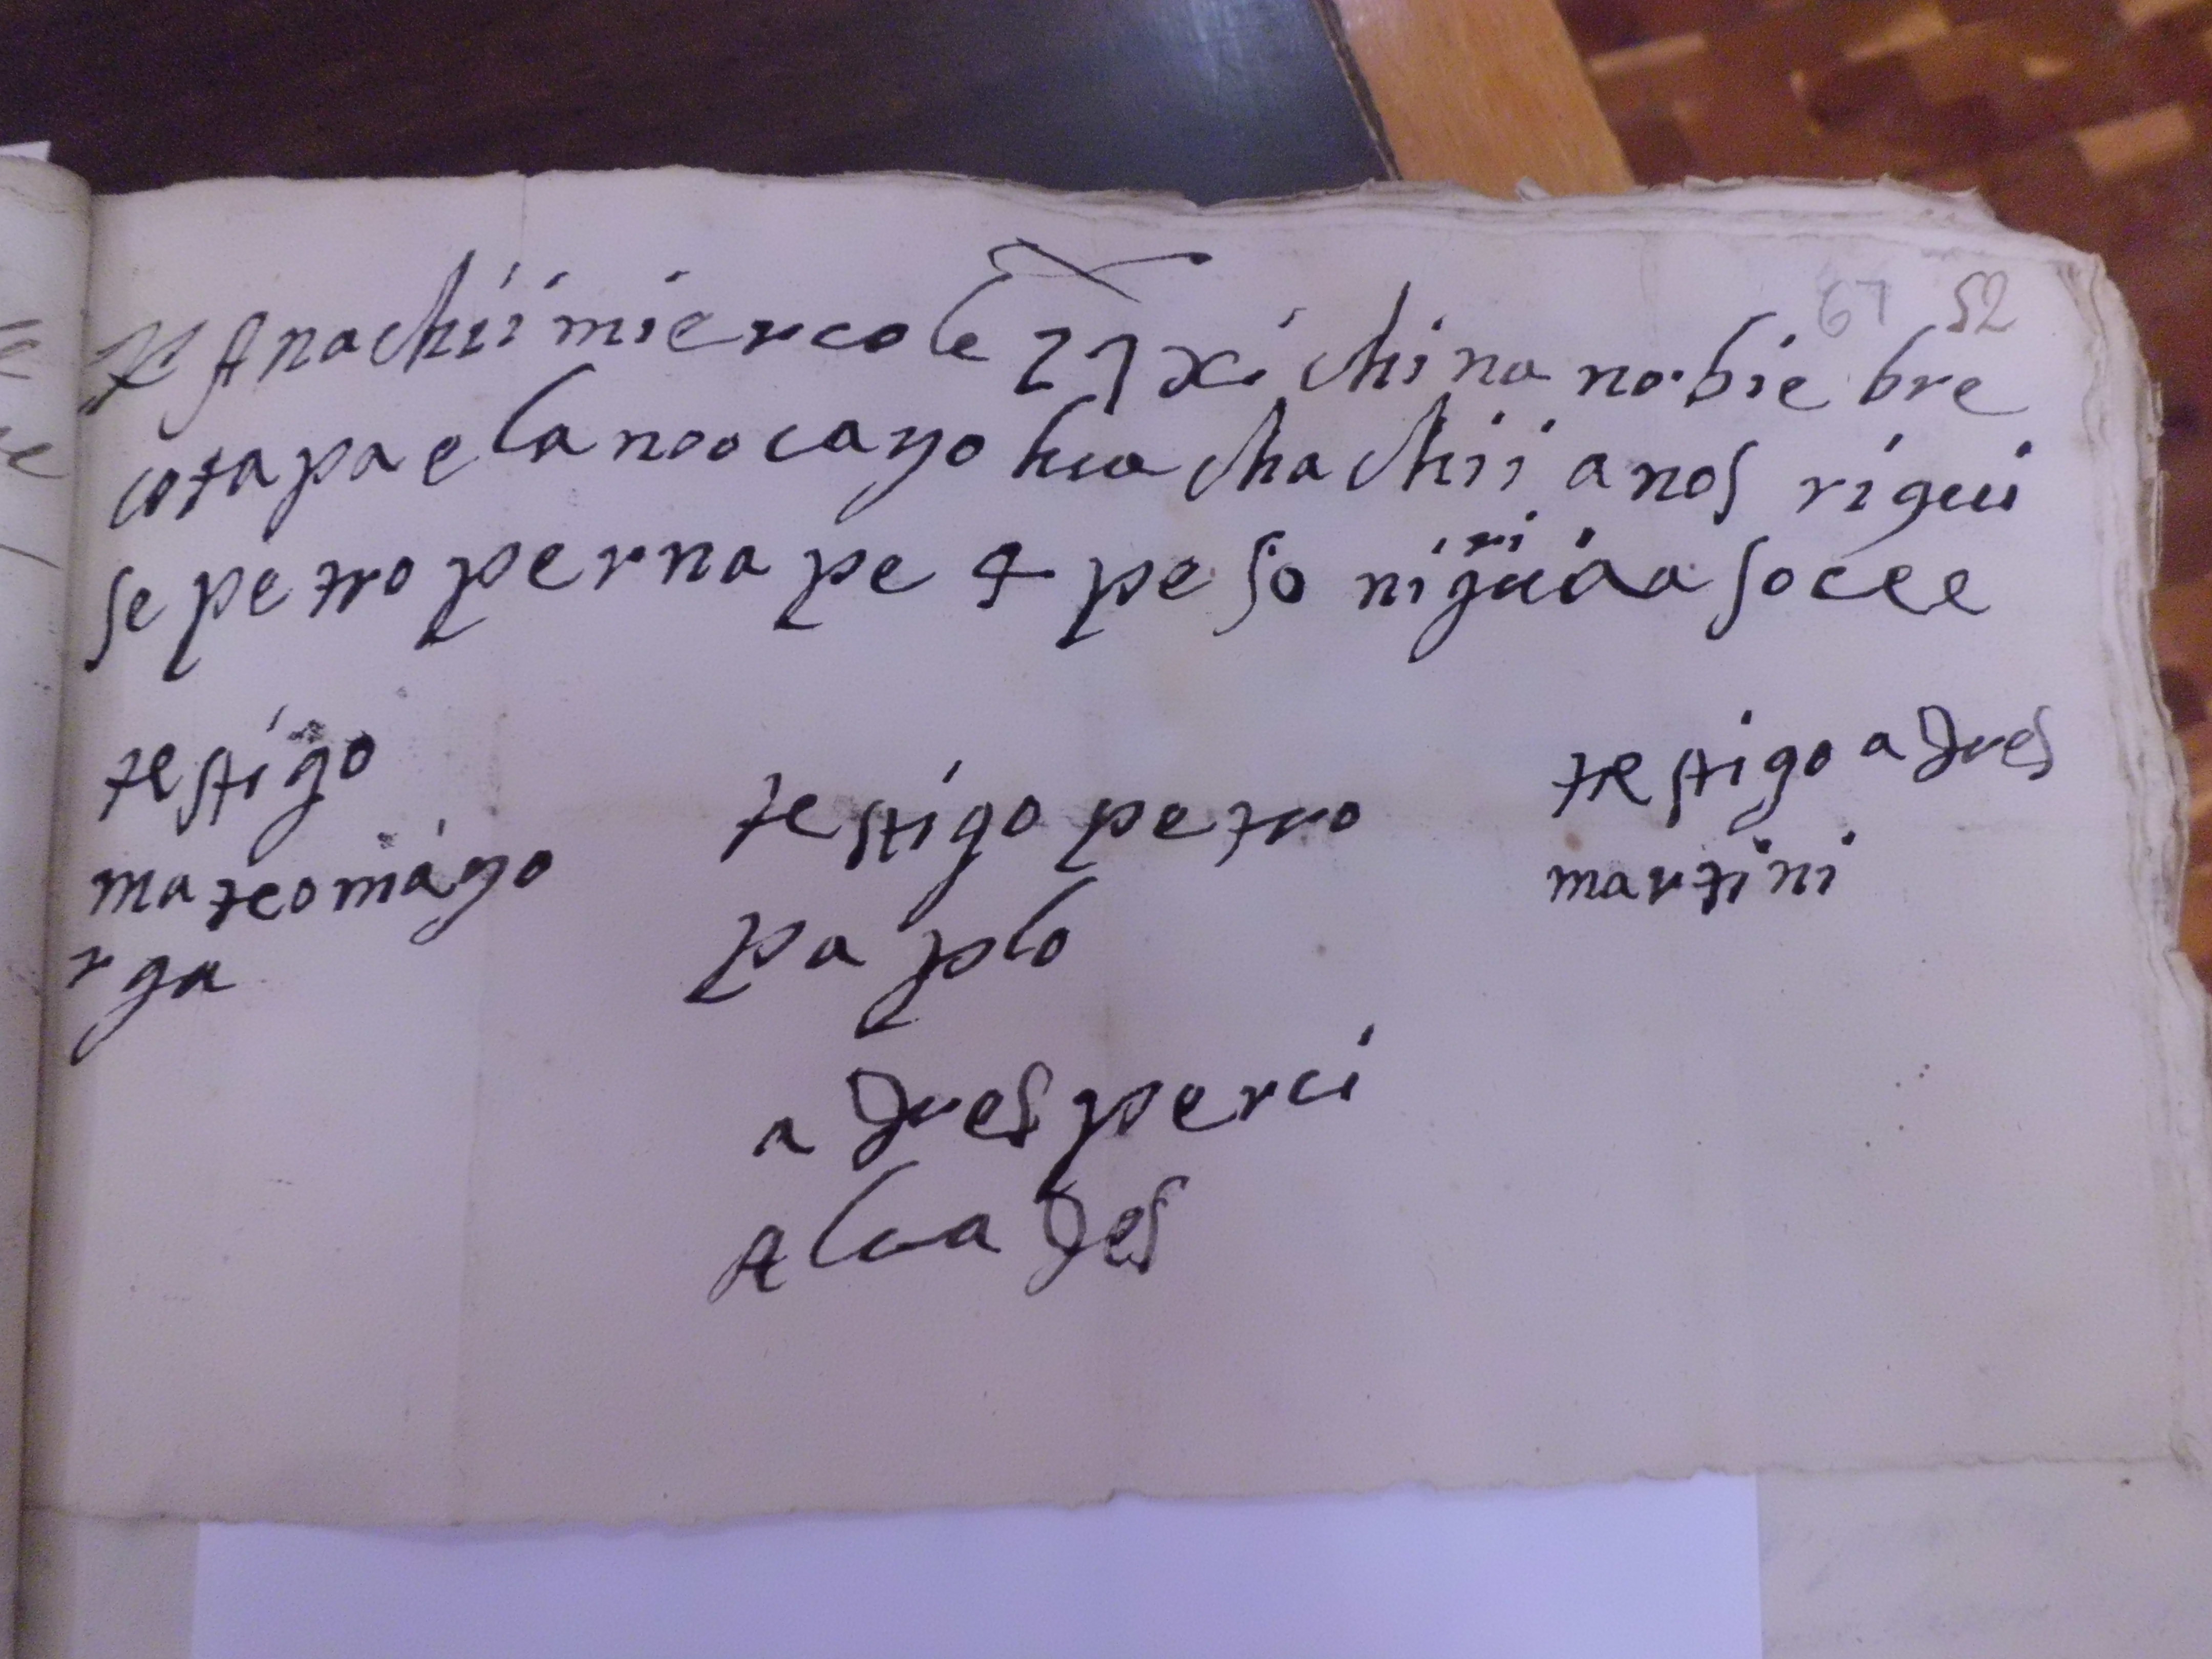 67 52
Anachii miercole 27 xichina nobiebre
cotapa elanoo cayo hua chachii anos rigui
se petro pernape 4 peso niguiaa socee
ri
testigo
mateo mayo
rga
testigo petro
paplo
testigo adres
martini
adres perci
Alcades